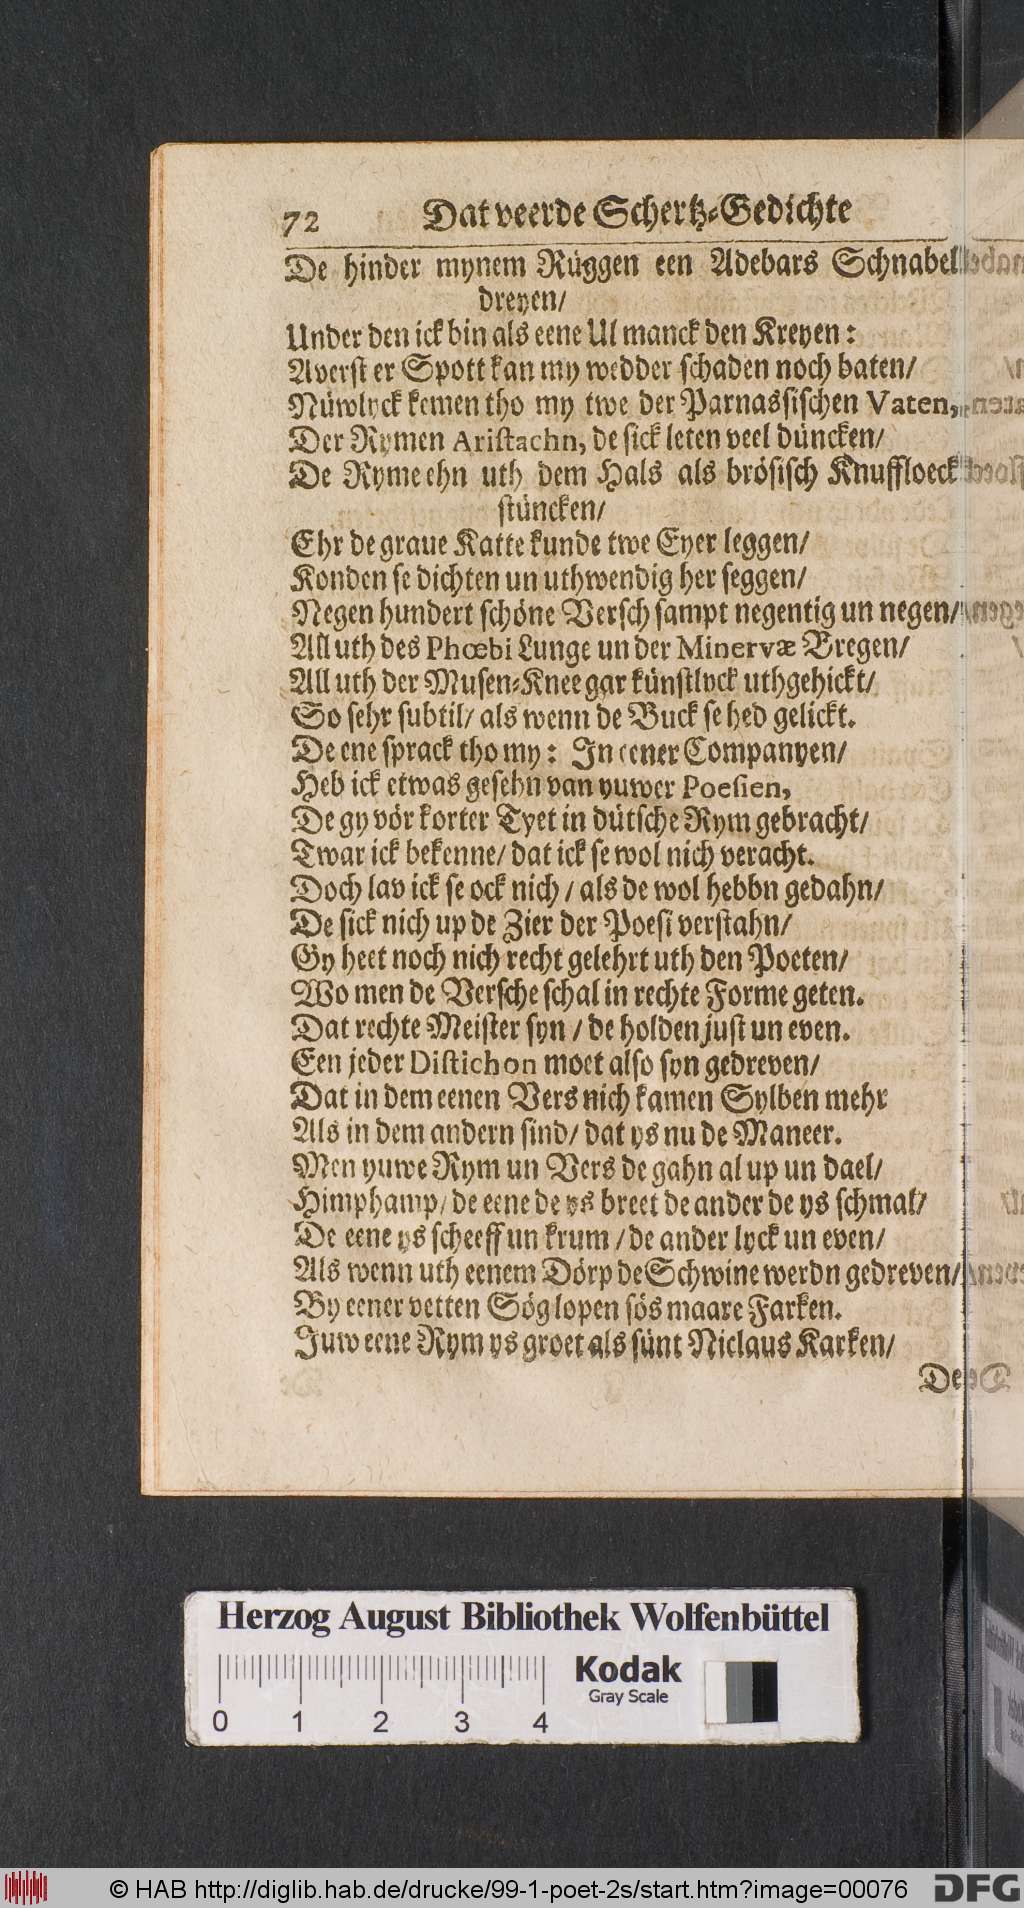 72 Dat veerde Schertz-Gedichte
De hinder mynem Rüggen een Adebars Schnabel
dreyen/
Under den ick bin als eene Ul manck den Kreyen:
Averst er Spott kan my wedder schaden noch baten/
Nüwlyck kemen tho my twe der Parnassischen Vaten,
Der Rymen Aristachn, de sick leten veel düncken/
De Ryme ehn uth dem Hals als brösisch Knuffloeck
stüncken/
Ehr de graue Katte kunde twe Eyer leggen/
Konden se dichten un uthwendig her seggen/
Negen hundert schöne Versch sampt negentig un negen/
All uth des Phœbi Lunge un der Minervæ Bregen/
All uth der Musen-Knee gar künstlyck uthgehickt/
So sehr subtil/ als wenn de Buck se hed gelickt.
De ene sprack tho my: In eener Companyen/
Heb ick etwas gesehn van yuwer Poesien,
De gy vör korter Tyet in dütsche Rym gebracht/
Twar ick bekenne/ dat ick se wol nich veracht.
Doch lav ick se ock nich / als de wol hebbn gedahn/
De sick nich up de Zier der Poesi verstahn/
Gy heet noch nich recht gelehrt uth den Poeten/
Wo men de Versche schal in rechte Forme geten.
Dat rechte Meister syn / de holden just un even.
Een jeder Distichon moet also syn gedreven/
Dat in dem eenen Vers nich kamen Sylben mehr
Als in dem andern sind/ dat ys nu de Maneer.
Men yuwe Rym un Vers de gahn al up un dael/
Himphamp/ de eene de ys breet de ander de ys schmal/
De eene ys scheeff un krum / de ander lyck un even/
Als wenn uth eenem Dörp de Schwine werdn gedreven/
By eener vetten Sög lopen sös maare Farken.
Juw eene Rym ys groet als sünt Niclaus Karken/
De
Herzog August Bibliothek Wolfenbüttel
Kodak
Gray Scale
0 1 2 3 4
© HAB http://diglib.hab.de/drucke/99-1-poet-2s/start.htm?image=00076
DFG